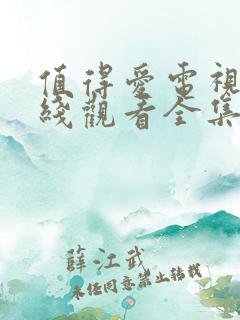 值得爱電視
綫觀看全集
薛江武
未经同意禁止转载